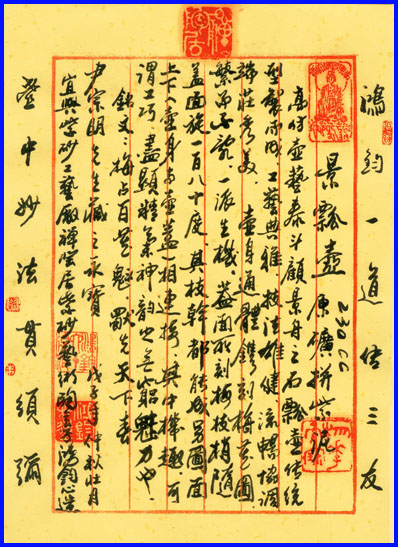 鴻鈞一道傳三友
景瓢壺 原礦拼紫泥
230cc
高仿壺藝泰斗顧景舟之石瓢壺傳統
型製而成工藝典雅技法雄健流轉協調
端莊秀美.壺身通體鐫刻梅花圖
繁而不亂.一派生機.蓋面所刻梅枝梢隨
蓋面旋一百八十度.其枝幹都能與圖面
上下(壺身與壺蓋)相連接其中樂趣可
謂工巧.盡顯體氣神韻也無窮魅力也
銘文:梅占百花魁 獻先天下春
尹宗明先生藏之永寶 戊子年仲秋壯月
宜興紫砂工藝廠禪壺居紫砂藝術鴻鈞心造
壺中妙法貫須彌